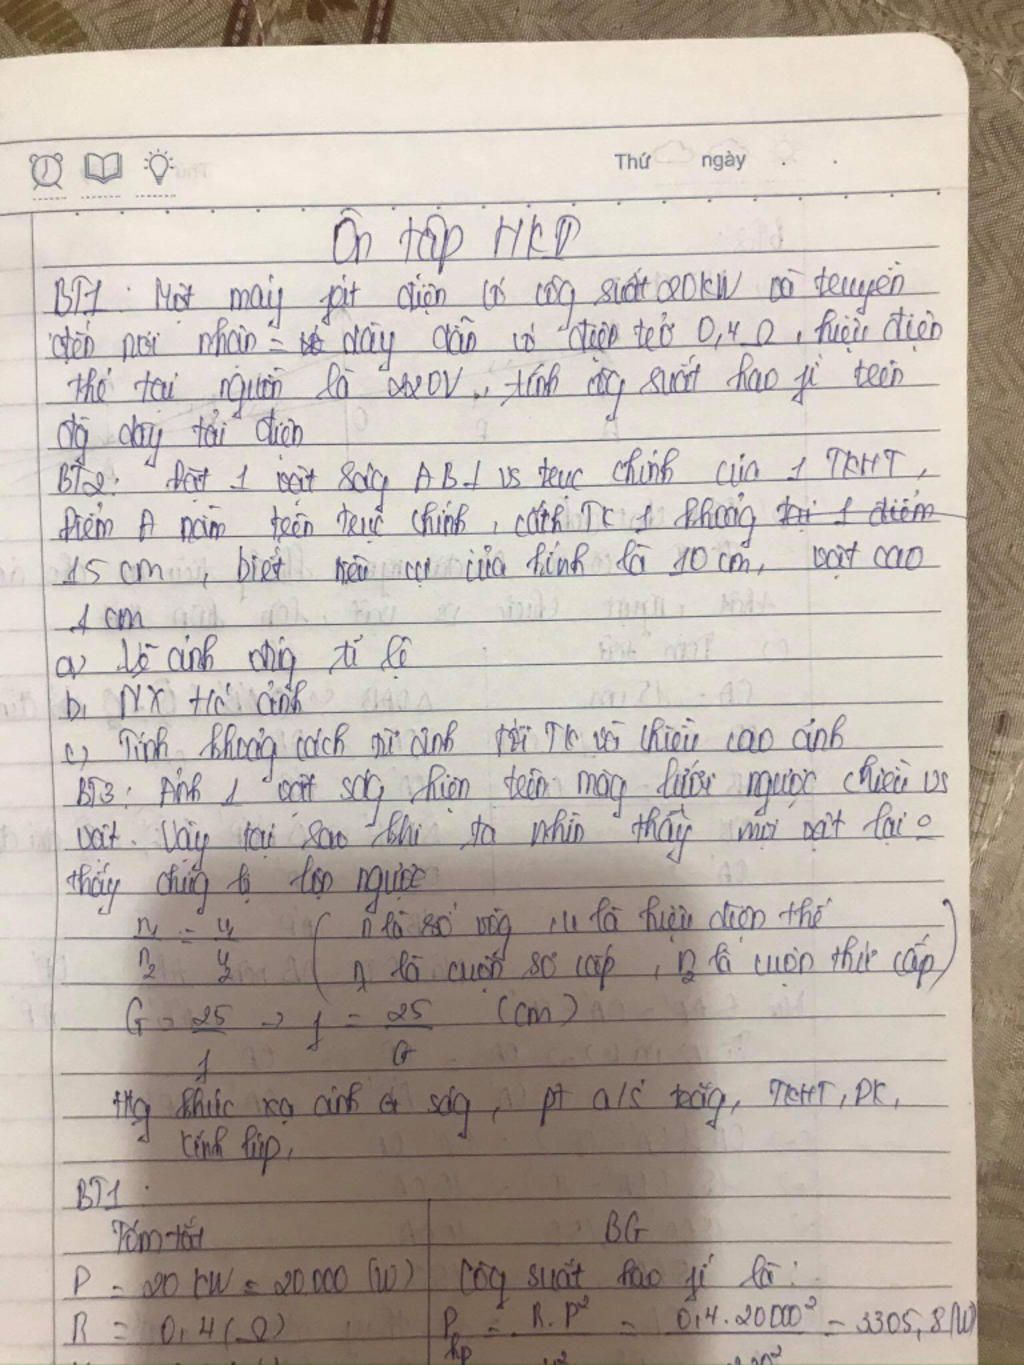 Thứ ngày
Ôn tập HKII
BT1: Một máy fát điện có côg suất 20kW và truyền
đến nơi nhận = dây dẫn có điện trở 0,4 Ω, hiệu điện
thế tại nguồn là 220V, tính côg suất hao fí trên
đg dây tải điện
BT2: Đặt 1 vật ság AB ⊥ vs trục chính của 1 TKHT,
điểm A nằm trên trục chính, cách TK 1 khoảg tại 1 điểm
15 cm, biết tiêu cự của kính là 10 cm, vật cao
1 cm
a) Vẽ ảnh đúg tỉ lệ
b, NX t/c ảnh
c) Tính khoảg cách từ ảnh tới TK và chiều cao ảnh
BT3: Ảnh 1 vật ság hiện trên màg lưới ngược chiều vs
vật. Vậy tại sao khi ta nhìn thấy mọi vật lại o
thấy chúg bị lộn ngược
n₁ = u₁ (n là số vòg, u là hiệu điện thế
n₂ u₂ n₁ là cuộn sơ cấp, n₂ là cuộn thứ cấp)
G = 25 → f = 25 (cm)
f G
Htg khúc xạ ánh ság, pt a/s trắg, TKHT, PK,
kính lúp,
BT1:
Tóm tắt BG
P = 20 kW = 20000 (W) Côg suất hao fí là:
R = 0,4 (Ω) P hp = R.P² = 0,4.20000² = 3305,8 (W)